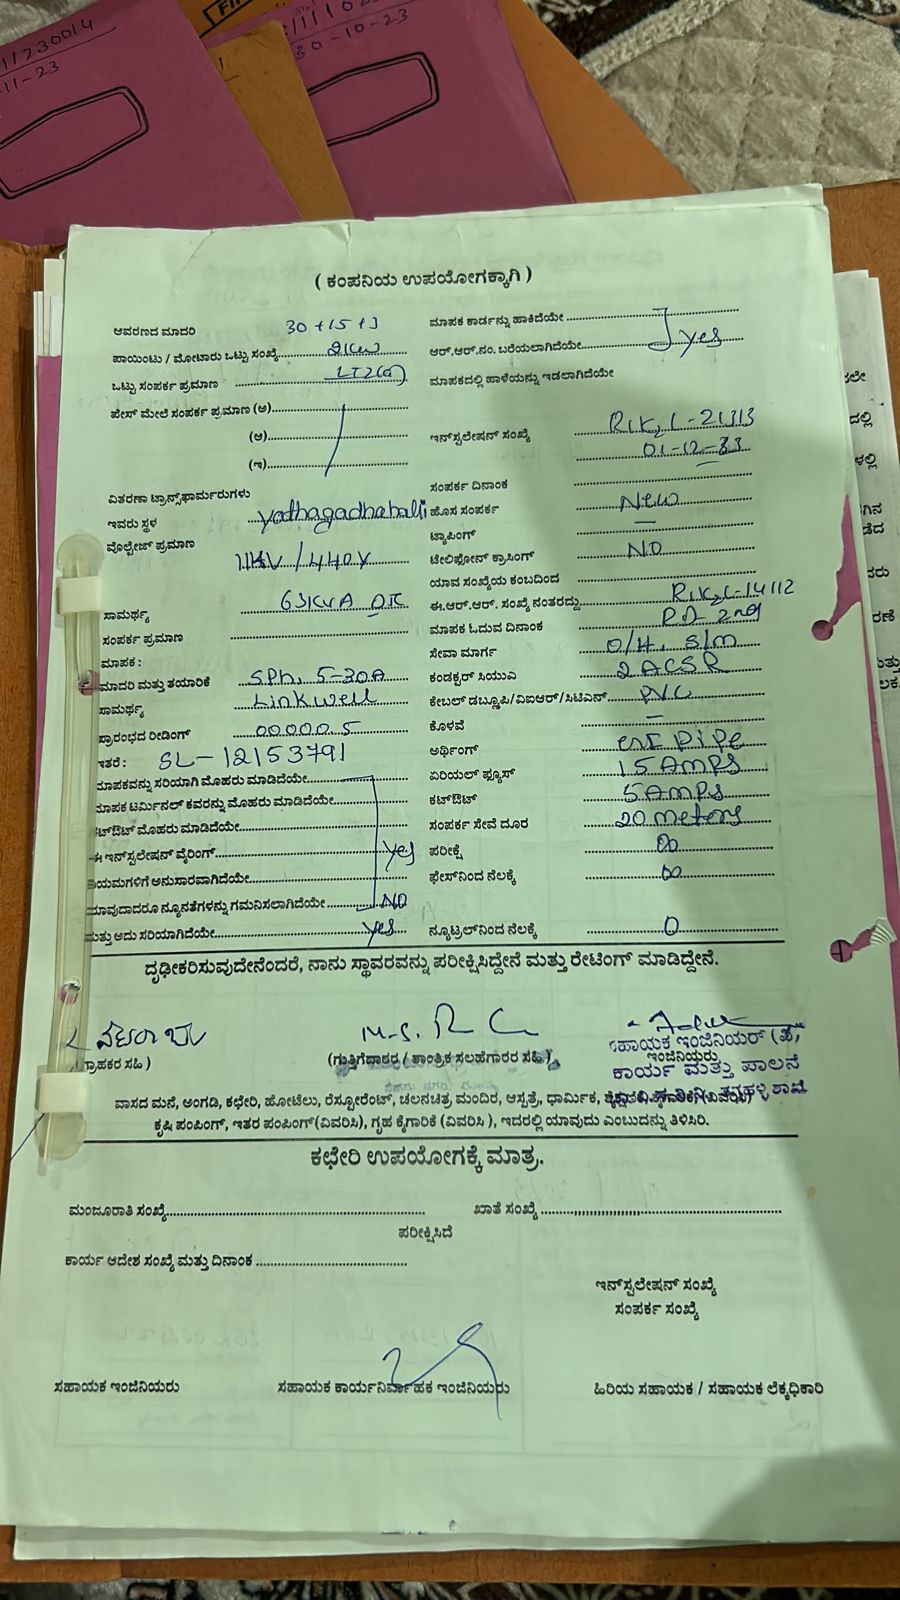 11/230014
11-23
30-10-23
( ಕಂಪನಿಯ ಉಪಯೋಗಕ್ಕಾಗಿ )
ಆವರಣದ ಮಾದರಿ 30+15+1
ಮಾಪಕ ಕಾರ್ಡನ್ನು ಹಾಕಿದೆಯೇ
ಪಾಯಿಂಟು / ಮೋಟಾರು ಒಟ್ಟು ಸಂಖ್ಯೆ
ಆರ್.ಆರ್.ನಂ. ಬರೆಯಲಾಗಿದೆಯೇ yes
ಒಟ್ಟು ಸಂಪರ್ಕ ಪ್ರಮಾಣ LT2(a)
ಮಾಪಕದಲ್ಲಿ ಹಾಳೆಯನ್ನು ಇಡಲಾಗಿದೆಯೇ
ಪೇಸ್ ಮೇಲೆ ಸಂಪರ್ಕ ಪ್ರಮಾಣ (ಅ)
(ಆ)
ಇನ್‌ಸ್ಟಲೇಷನ್ ಸಂಖ್ಯೆ
(ಇ)
ಸಂಪರ್ಕ ದಿನಾಂಕ
ವಿತರಣಾ ಟ್ರಾನ್ಸ್‌ಫಾರ್ಮರುಗಳು
ಇವರು ಸ್ಥಳ yadhagadhahalli
ಹೊಸ ಸಂಪರ್ಕ New
ಟ್ಯಾಪಿಂಗ್ –
ವೊಲ್ಟೇಜ್ ಪ್ರಮಾಣ 11kV / 440V
ಟೆಲಿಫೋನ್ ಕ್ರಾಸಿಂಗ್ NO
ಯಾವ ಸಂಖ್ಯೆಯ ಕಂಬದಿಂದ
ಸಾಮರ್ಥ್ಯ 63KVA
ಈ.ಆರ್.ಆರ್. ಸಂಖ್ಯೆ ನಂತರದ್ದು
ಸಂಪರ್ಕ ಪ್ರಮಾಣ
ಮಾಪಕ ಓದುವ ದಿನಾಂಕ
ಮಾಪಕ :
ಸೇವಾ ಮಾರ್ಗ O/H. S/M
ಮಾದರಿ ಮತ್ತು ತಯಾರಿಕೆ SPh, 5-30A
ಕಂಡಕ್ಟರ್ ಸಿಯುಎ 2 ACSR
ಸಾಮರ್ಥ್ಯ Linkwell
ಕೇಬಲ್ ಡಬ್ಲೂಪಿ/ವಿಐಆರ್/ಸಿಟಿಎಸ್ PVC
ಪ್ರಾರಂಭದ ರೀಡಿಂಗ್ 00000.5
ಕೊಳವೆ –
ಇತರೆ : SL-12153791
ಅರ್ಥಿಂಗ್ Pipe
ಮಾಪಕವನ್ನು ಸರಿಯಾಗಿ ಮೊಹರು ಮಾಡಿದೆಯೇ
ಏರಿಯಲ್ ಫ್ಯೂಸ್ 15 AMPS
ಮಾಪಕ ಟರ್ಮಿನಲ್ ಕವರನ್ನು ಮೊಹರು ಮಾಡಿದೆಯೇ
ಕಟ್‌ಔಟ್ 5 AMPS
ಕಟ್‌ಔಟ್ ಮೊಹರು ಮಾಡಿದೆಯೇ
ಸಂಪರ್ಕ ಸೇವೆ ದೂರ 20 meters
ಈ ಇನ್‌ಸ್ಟಲೇಷನ್ ವೈರಿಂಗ್ yes
ಪರೀಕ್ಷೆ ∞
ನಿಯಮಗಳಿಗೆ ಅನುಸಾರವಾಗಿದೆಯೇ
ಫೇಸ್‌ನಿಂದ ನೆಲಕ್ಕೆ ∞
ಯಾವುದಾದರೂ ನ್ಯೂನತೆಗಳನ್ನು ಗಮನಿಸಲಾಗಿದೆಯೇ NO
ಮತ್ತು ಅದು ಸರಿಯಾಗಿದೆಯೇ yes
ನ್ಯೂಟ್ರಲ್‌ನಿಂದ ನೆಲಕ್ಕೆ 0
ದೃಢೀಕರಿಸುವುದೇನೆಂದರೆ, ನಾನು ಸ್ಥಾವರವನ್ನು ಪರೀಕ್ಷಿಸಿದ್ದೇನೆ ಮತ್ತು ರೇಟಿಂಗ್ ಮಾಡಿದ್ದೇನೆ.
(ಗ್ರಾಹಕರ ಸಹಿ )
(ಗುತ್ತಿಗೆದಾರರ / ತಾಂತ್ರಿಕ ಸಲಹೆಗಾರರ ಸಹಿ )
ಸಹಾಯಕ ಇಂಜಿನಿಯರ್
ಇಂಜಿನಿಯರು
ಕಾರ್ಯ ಮತ್ತು ಪಾಲನೆ
ವಾಸದ ಮನೆ, ಅಂಗಡಿ, ಕಛೇರಿ, ಹೋಟೆಲು, ರೆಸ್ಟೋರೆಂಟ್, ಚಲನಚಿತ್ರ ಮಂದಿರ, ಆಸ್ಪತ್ರೆ, ಧಾರ್ಮಿಕ,
ಕೃಷಿ ಪಂಪಿಂಗ್, ಇತರ ಪಂಪಿಂಗ್(ವಿವರಿಸಿ), ಗೃಹ ಕೈಗಾರಿಕೆ (ವಿವರಿಸಿ ), ಇದರಲ್ಲಿ ಯಾವುದು ಎಂಬುದನ್ನು ತಿಳಿಸಿರಿ.
ಕಛೇರಿ ಉಪಯೋಗಕ್ಕೆ ಮಾತ್ರ.
ಮಂಜೂರಾತಿ ಸಂಖ್ಯೆ
ಖಾತೆ ಸಂಖ್ಯೆ
ಪರೀಕ್ಷಿಸಿದೆ
ಕಾರ್ಯ ಆದೇಶ ಸಂಖ್ಯೆ ಮತ್ತು ದಿನಾಂಕ
ಇನ್‌ಸ್ಟಲೇಷನ್ ಸಂಖ್ಯೆ
ಸಂಪರ್ಕ ಸಂಖ್ಯೆ
ಸಹಾಯಕ ಇಂಜಿನಿಯರು
ಸಹಾಯಕ ಕಾರ್ಯನಿರ್ವಾಹಕ ಇಂಜಿನಿಯರು
ಹಿರಿಯ ಸಹಾಯಕ / ಸಹಾಯಕ ಲೆಕ್ಕಧಿಕಾರಿ